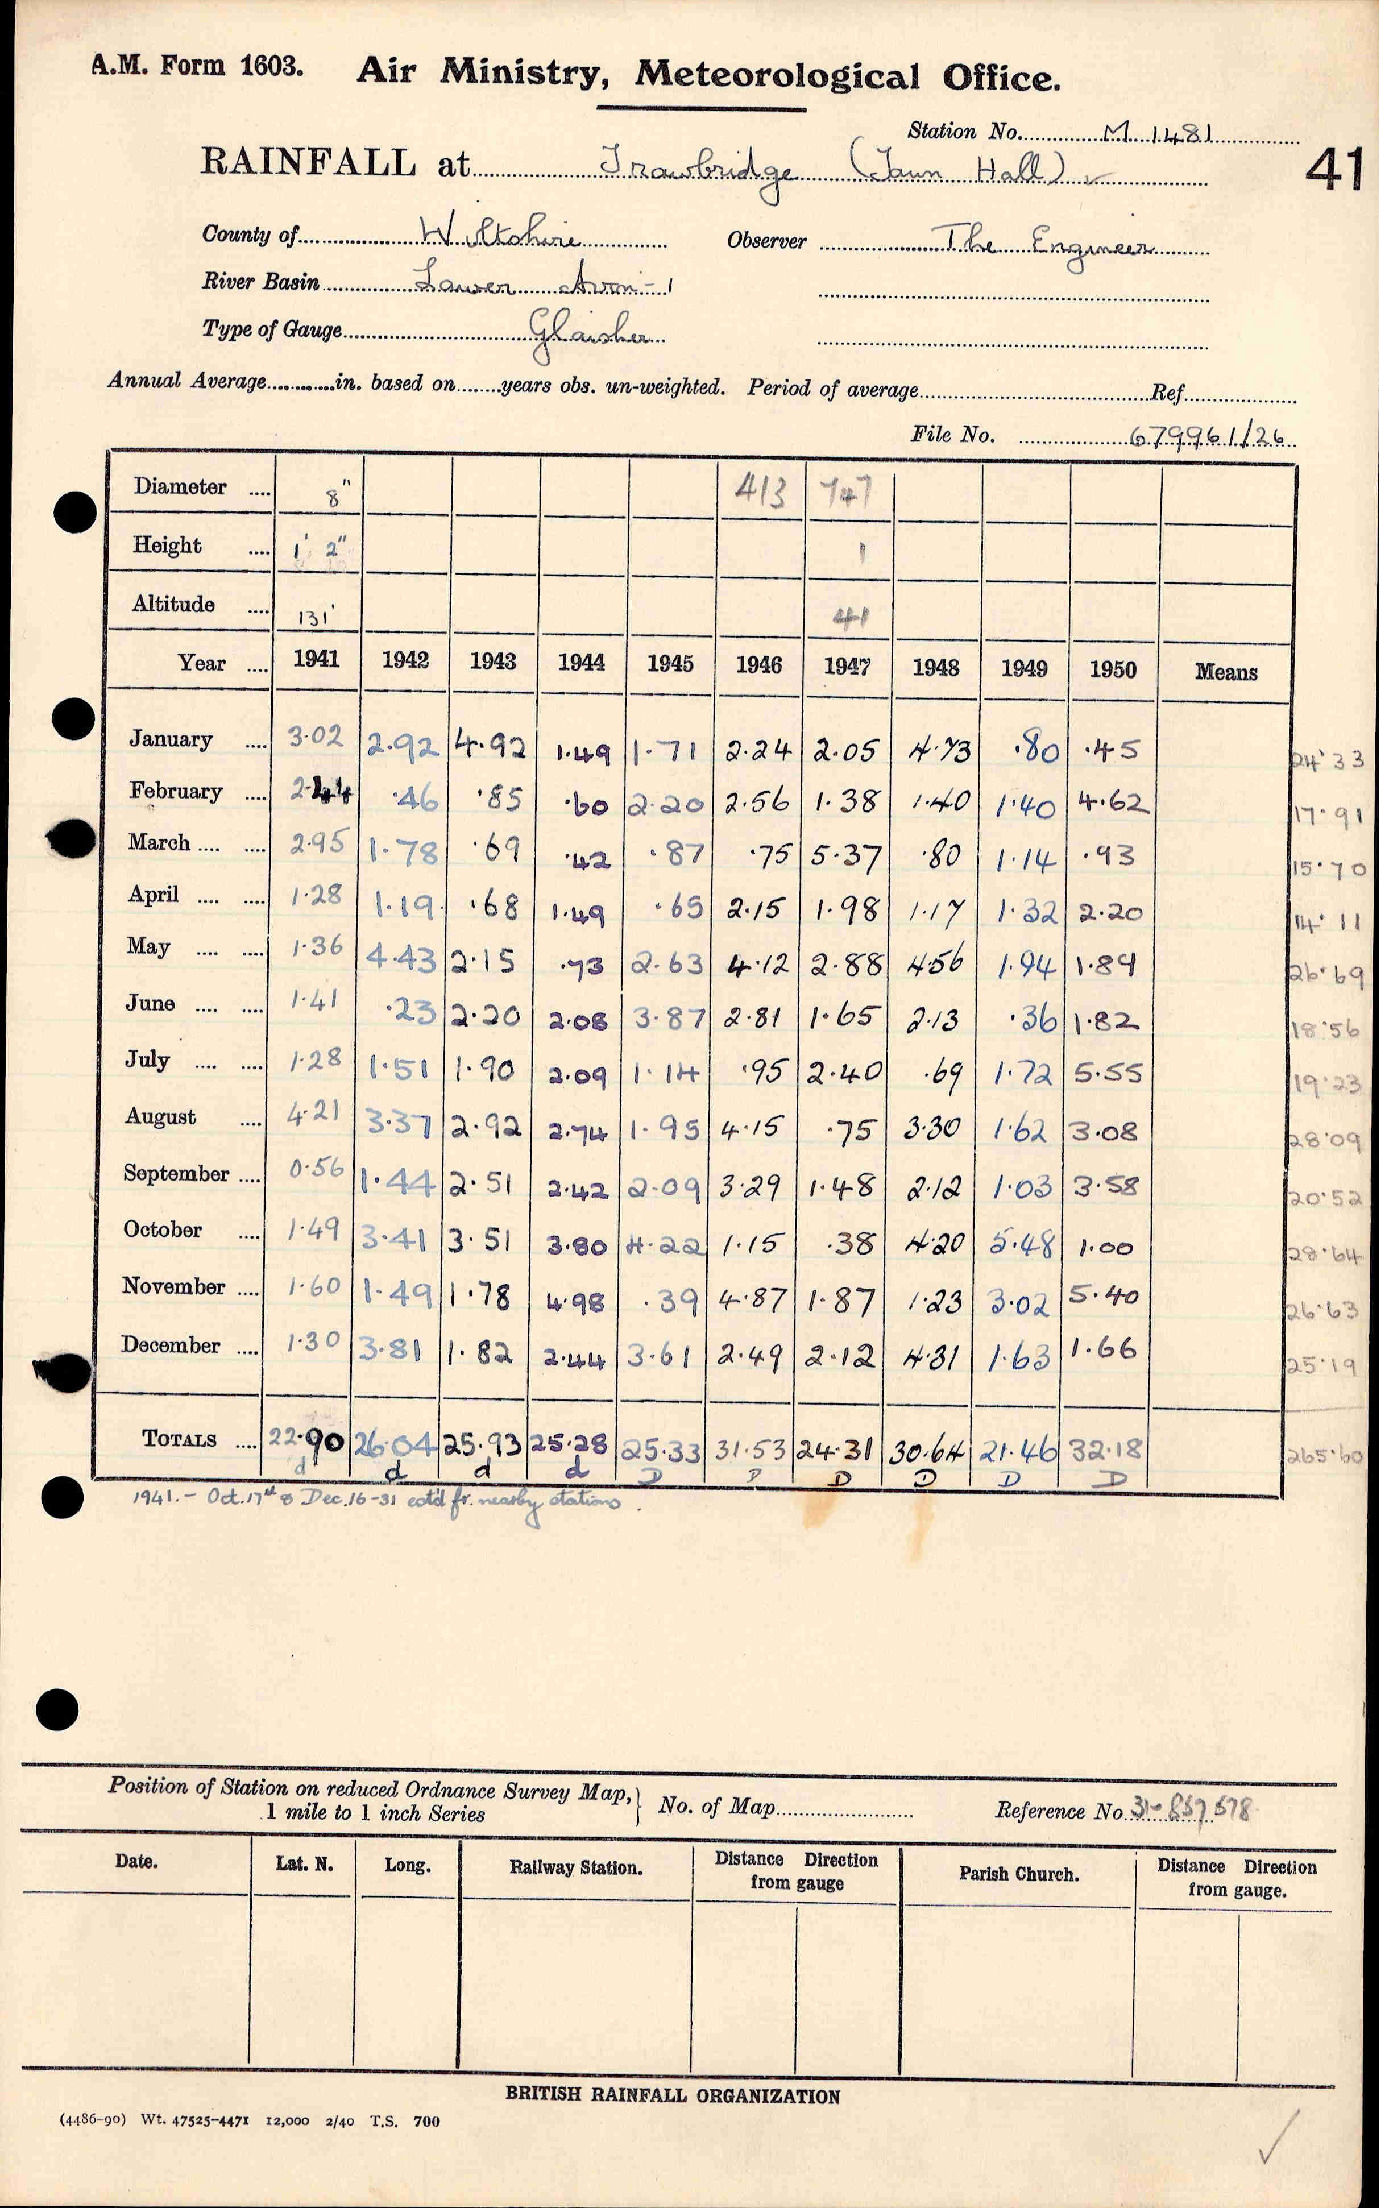 A.M. Form 1603. Air Ministry, Meteorological Office.
Station No. M 1481
RAINFALL at Trowbridge (Town Hall) ✓ 41
County of Wiltshire Observer The Engineer
River Basin Lower Avon - 1
Type of Gauge Glaisher
Annual Average in. based on years obs. un-weighted. Period of average Ref
File No. 679961/26
Diameter .... 8" 413 747
Height .... 1' 2" 1
Altitude .... 131' 41
Year .... 1941 1942 1943 1944 1945 1946 1947 1948 1949 1950 Means
January .... 3.02 2.92 4.92 1.49 1.71 2.24 2.05 4.73 .80 .45 24.33
February .... 2.44 .46 .85 .60 2.20 2.56 1.38 1.40 1.40 4.62 17.91
March .... .... 2.95 1.78 .69 .42 .87 .75 5.37 .80 1.14 .93 15.70
April .... .... 1.28 1.19 .68 1.49 .65 2.15 1.98 1.17 1.32 2.20 14.11
May .... .... 1.36 4.43 2.15 .73 2.63 4.12 2.88 4.56 1.94 1.89 26.69
June .... .... 1.41 .23 2.20 2.08 3.87 2.81 1.65 2.13 .36 1.82 18.56
July .... .... 1.28 1.51 1.90 2.09 1.14 .95 2.40 .69 1.72 5.55 19.23
August .... 4.21 3.37 2.92 2.74 1.95 4.15 .75 3.30 1.62 3.08 28.09
September .... 0.56 1.44 2.51 2.42 2.09 3.29 1.48 2.12 1.03 3.58 20.52
October .... 1.49 3.41 3.51 3.80 4.22 1.15 .38 4.20 5.48 1.00 28.64
November .... 1.60 1.49 1.78 4.98 .39 4.87 1.87 1.23 3.02 5.40 26.63
December .... 1.30 3.81 1.82 2.44 3.61 2.49 2.12 4.31 1.63 1.66 25.19
TOTALS .... 22.90 26.04 25.93 25.28 25.33 31.53 24.31 30.64 21.46 32.18 265.60
d d d d D D D D D D
1941. - Oct. 17th & Dec. 16-31 estd fr. nearby stations.
Position of Station on reduced Ordnance Survey Map,
1 mile to 1 inch Series } No. of Map Reference No 31- 857 578
Date. Lat. N. Long. Railway Station. Distance Direction from gauge Parish Church. Distance Direction from gauge.
BRITISH RAINFALL ORGANIZATION
(4486-90) Wt. 47525-4471 12,000 2/40 T.S. 700